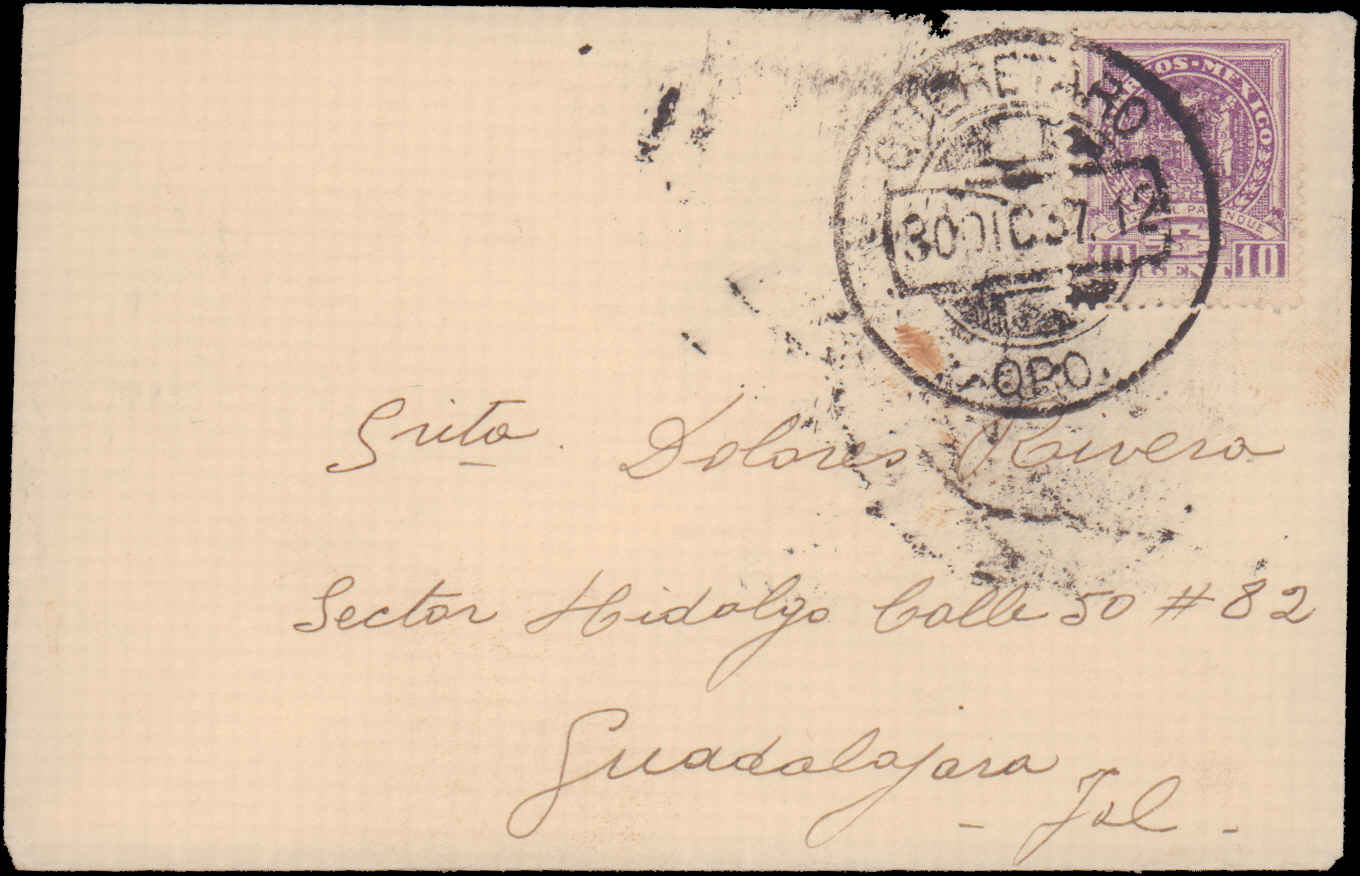 QUERETARO
30 DIC 37. 12
QRO.
OS-MEXICO
10 CENT 10
Srita. Dolores Rivera
Sector Hidalgo Calle 50 # 82
Guadalajara
- Jal -